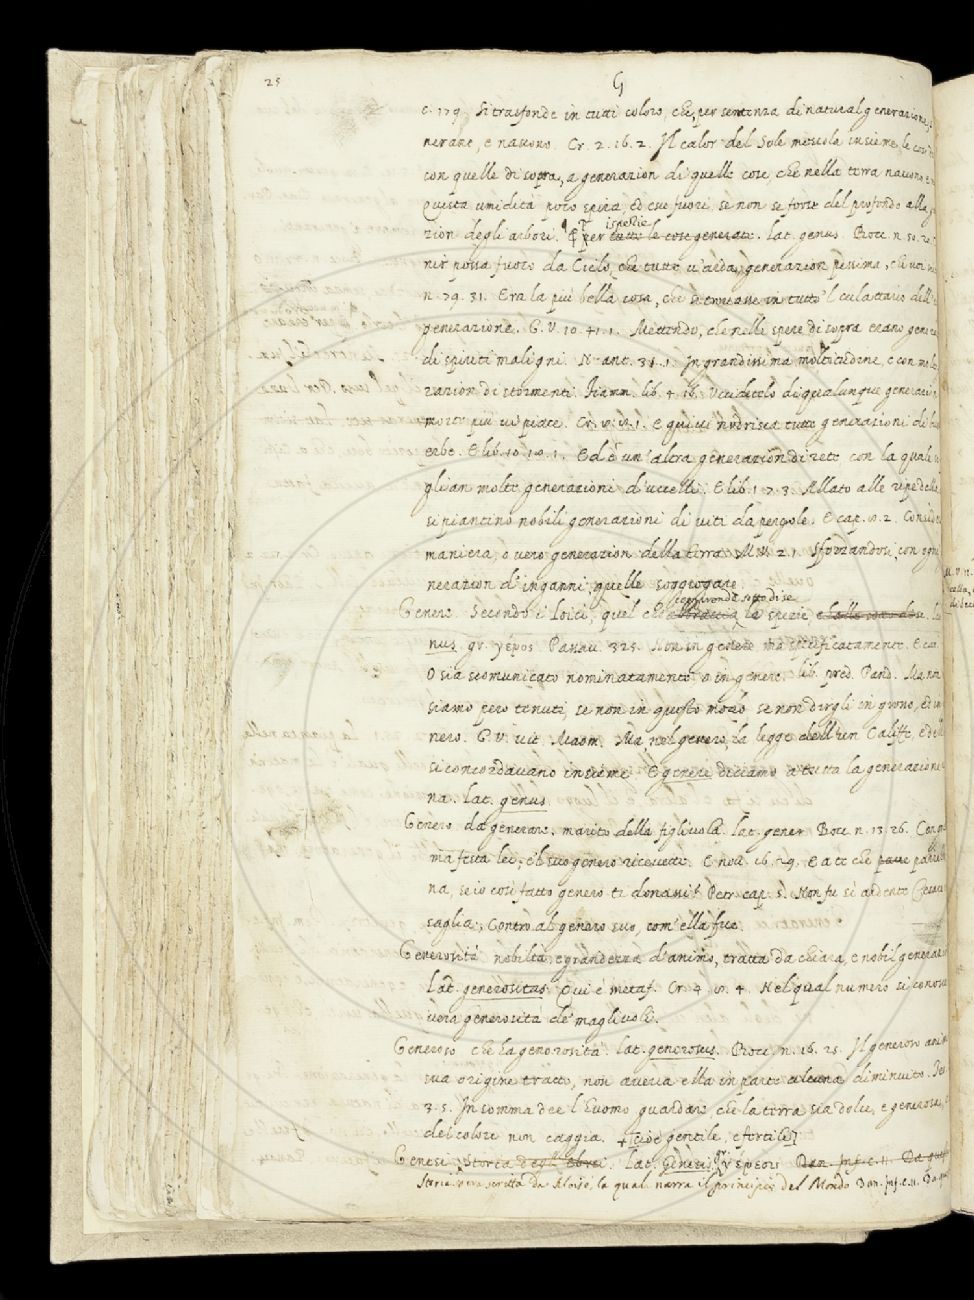 25
G
c. 179. Si trasfonde in tutti coloro, che per sentenza di natural generazione,
nerare, e nascono. Cr. 2. 16. 2. Il calor del Sole mescola insieme le cose di
con quelle di sopra, a generazion di quelle cose, che nella terra nascono, e
Questa umidità poco spira, ed esce fuori, se non se forse del profondo alla ge
ispezie
zion degli arbori. ¶ per tutte le cose generate. lat. genus. Bocc. n. 50. 20.
nir possa fuoco da Cielo, che tutte v'arda, generazion pessima, che voi
n. 79. 31. Era la più bella cosa, che si trovasse in tutto 'l culattario dell'
generazione. G. V. 10. 41. 1. Mettendo, che nelle spere di sopra erano genera
di spiriti maligni. N. ant. 35. 1. In grandissima moltitudine, e con molte
razion di stormenti. Fiamm. lib. 4. 16. Uccidetelo di qualunque generazi
morte più vi piace. Cr. 1. E quivi nodrisca tutte generazioni di
erbe. E lib. 10. 1. Ed è un'altra generazion di rete, con la quale
glian molte generazioni d'uccelli. E lib. 1. 7. 3. Allato alle ripe delle
si piantino nobili generazioni di viti da pergole. E cap. 2. Consider
maniera, o vero generazion della terra. M. V. 2. 1. Sforzandosi, con ogni
nerazion d'inganni, quelle soggiogare.
comprende sotto di se
Genere. Secondo i loici, quel che abbraccia le spezie
nus. gr. γένος. Passav. 325. Non in genere ma specificatamente. E car.
O sia scomunicato nominatamente o in genere. lib. pred. Pand. Ma non
siamo però tenuti, se non in questo modo se non dirgli in grono, ed in
nero. G. V. vit. Maom. Ma, nel genero, la legge dell'un Califfe, e dell
si concordavano insieme. E genere diciamo a tutta la generazione
na. lat. genus.
Genero da generare. marito della figlivola. lat. gener. Bocc. n. 13. 26. Con gr
ma festa lei, e 'l suo genero ricevette. E nov. 16. 29. E a te che parrebbe
na, se io così fatto genero ti donassi? Petr. cap. 5. Non fu si ardente Cesare
saglia, Contro al genero suo, com'ella fue.
Generosità nobiltà, e grandezza d'animo, tratta da chiara, e nobil generazi
lat. generositas. Qui è metaf. Cr. 4. 4. Nel qual numero si conosce
vera generosità de' maglivoli.
Generoso che ha generosità. lat. generosus. Bocc. n. 16. 25. Il generoso anim
sua origine tratto, non aveva ella in parte alcuna diminuito.
3. 5. In somma dee l'huomo guardare che la terra sia dolce, e generosa,
del colore non caggia. + cioè gentile, e fertile]
Genesi Storia degli ebrei. lat. Genesis gr. γένεσις Dan. Inf. c. 11. Da quest
Storia vera scritta da Moisè, la qual narra il principio del Mondo Dan. Inf. c. 11. Da que